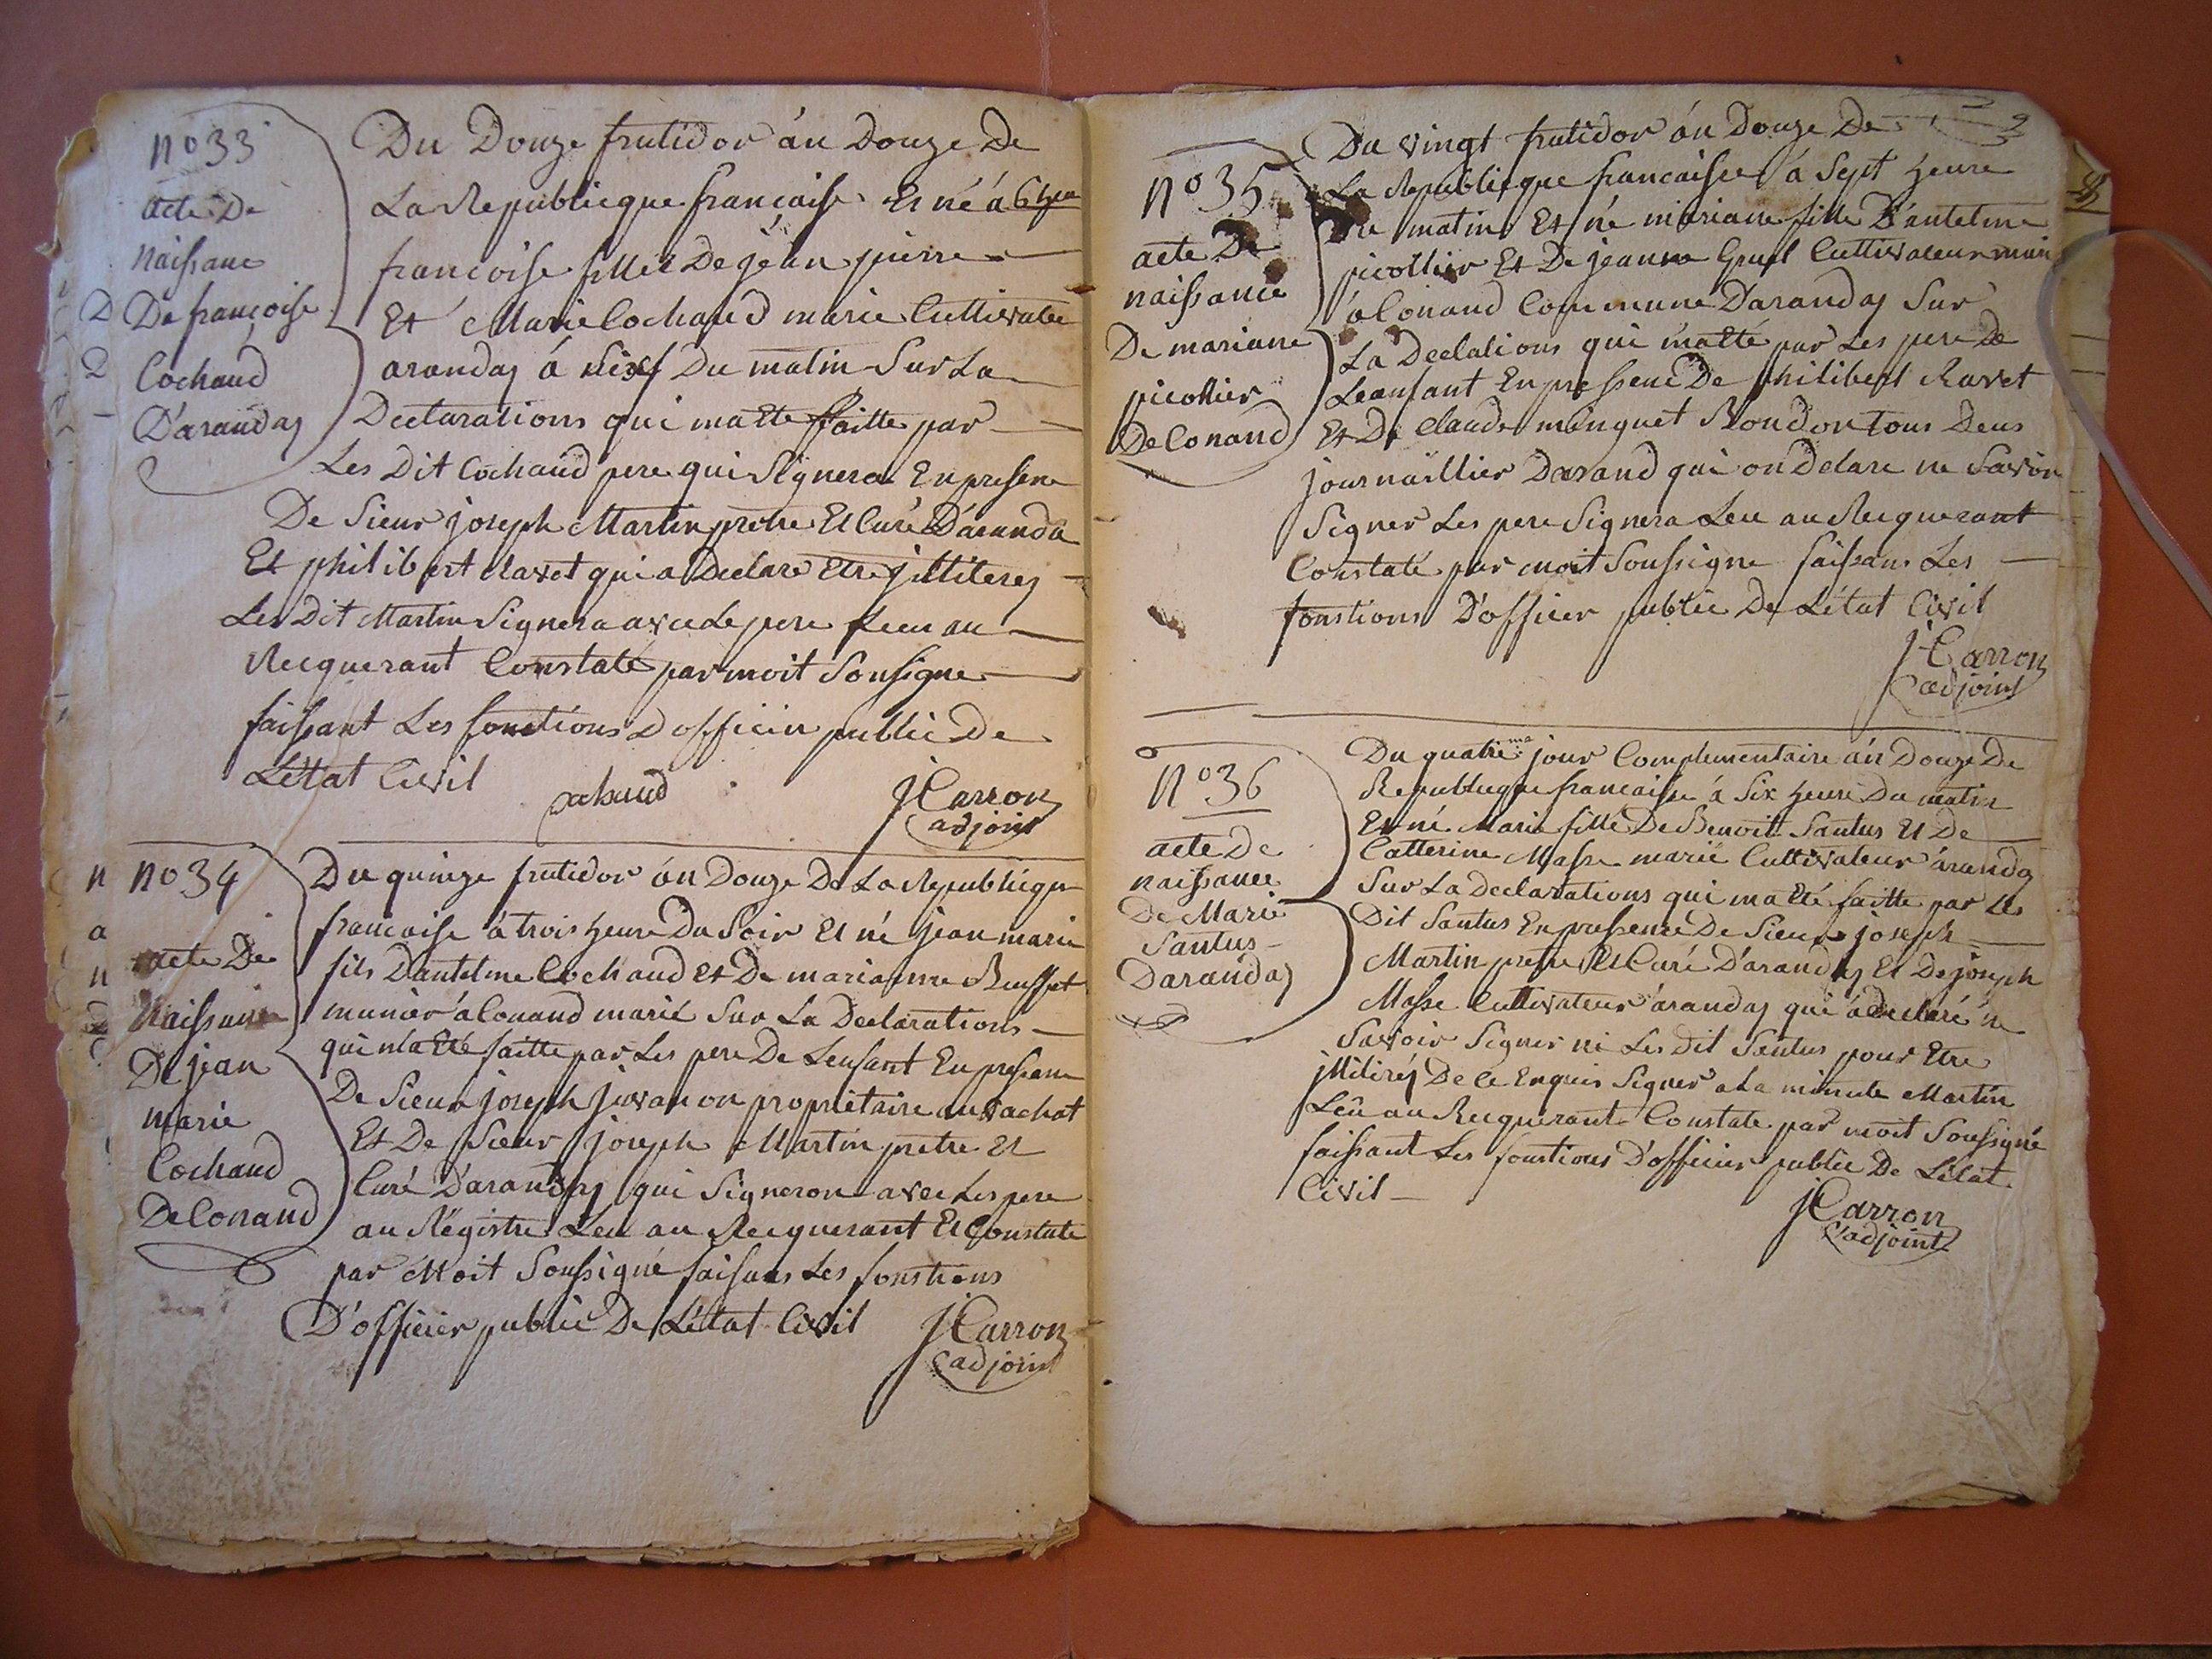 n° 33
acte De
Naissance
De françoise
Cochaud
D'arandas
Du Douze frutidor án Douze De
La Republicque françaisse Et né á 6 heure
francoisse fillie De jéan pierre
Et Marie Cochaud marie Cultivateu
arandas á Du matin Sur La
Declarations qui ma Eté faitte par
Les Dit Cochaud pere qui Signera En presene
De Sieur joseph Martin pretre Et Curé D'aranda
Et philibert Ravet qui a Declare Etre jlliteres
Les Dit Martin Signera avec Le pere Leu au
Recquerant Constaté par moit Sousigne
faissant Les fonctions D officier public De
L'état Civil
Cochaud
J Carron
adjoint
n° 34
acte De
Naissance
De jean
marie
Cochaud
De Conand
Du quinze frutidor án Douze De La Republicque
francaise á trois heure Du Soir Et né jean marie
fils D'antelme Cochaud Et De marianne
munier á Conand marié Sur La Declarations
qui m'a Eté faitte par Les pere De Lenfant En presence
De Sieur joseph juvanon propriètaire au vachat
Et De Sieur joseph Martin pretre Et
Curé D'arandas qui Signeron avec Les pere
au Régistre Leu au Recquerant Et Constate
par Moit Soussigné faisans Les fonstions
D'officier public De L'état Civil
J Carron
adjoint
n° 35
acte De
naissance
De mariane
picollier
De Conand
Du vingt frutidor án Douze De
La Republicque francaisse á Sept heure
Du matin Et né mariane fille D'antelme
picollier Et De jeanne Cultivateur
á Conand Commune D'arandas Sur
La Declations qui ma Eté par Les pere De
Leanfant En pressence De philibert Ravet
Et De Claude minguet Rondon tous Deus
journaillier Darand qui on Delare ne Savoir
Signer Les pere Signera Leu au Recquerant
Constaté par moit Soussigne faissans Les
fonstions D'officier public De L'état Civil
J Carron
adjoint
n° 36
acte De
naissance
De Marie
Santus
Darandas
Du quatrieme jour Complementaire án Douze De
Republicque francaisse á Six heure Du matin
Et né Marie fille De Benoit Santus Et De
Catterine Masse marié Cultivateur áranday
Sur La Declarations qui ma Eté faitte par Les
Dit Santus En pressence De Sieur joseph
Martin pretre Et Curé D'arandas Et De joseph
Masse Cultivateur arandas qui á Declaré ne
Savoir Signer ni Les Dit Santus pour Etre
jlliterés De Ce Enquis Signer a La minute Martin
Leû au Recquerant Constate par moit Soussigné
faissant Les fonstions D'officier public De L'état
Civil
J Carron
adjoint